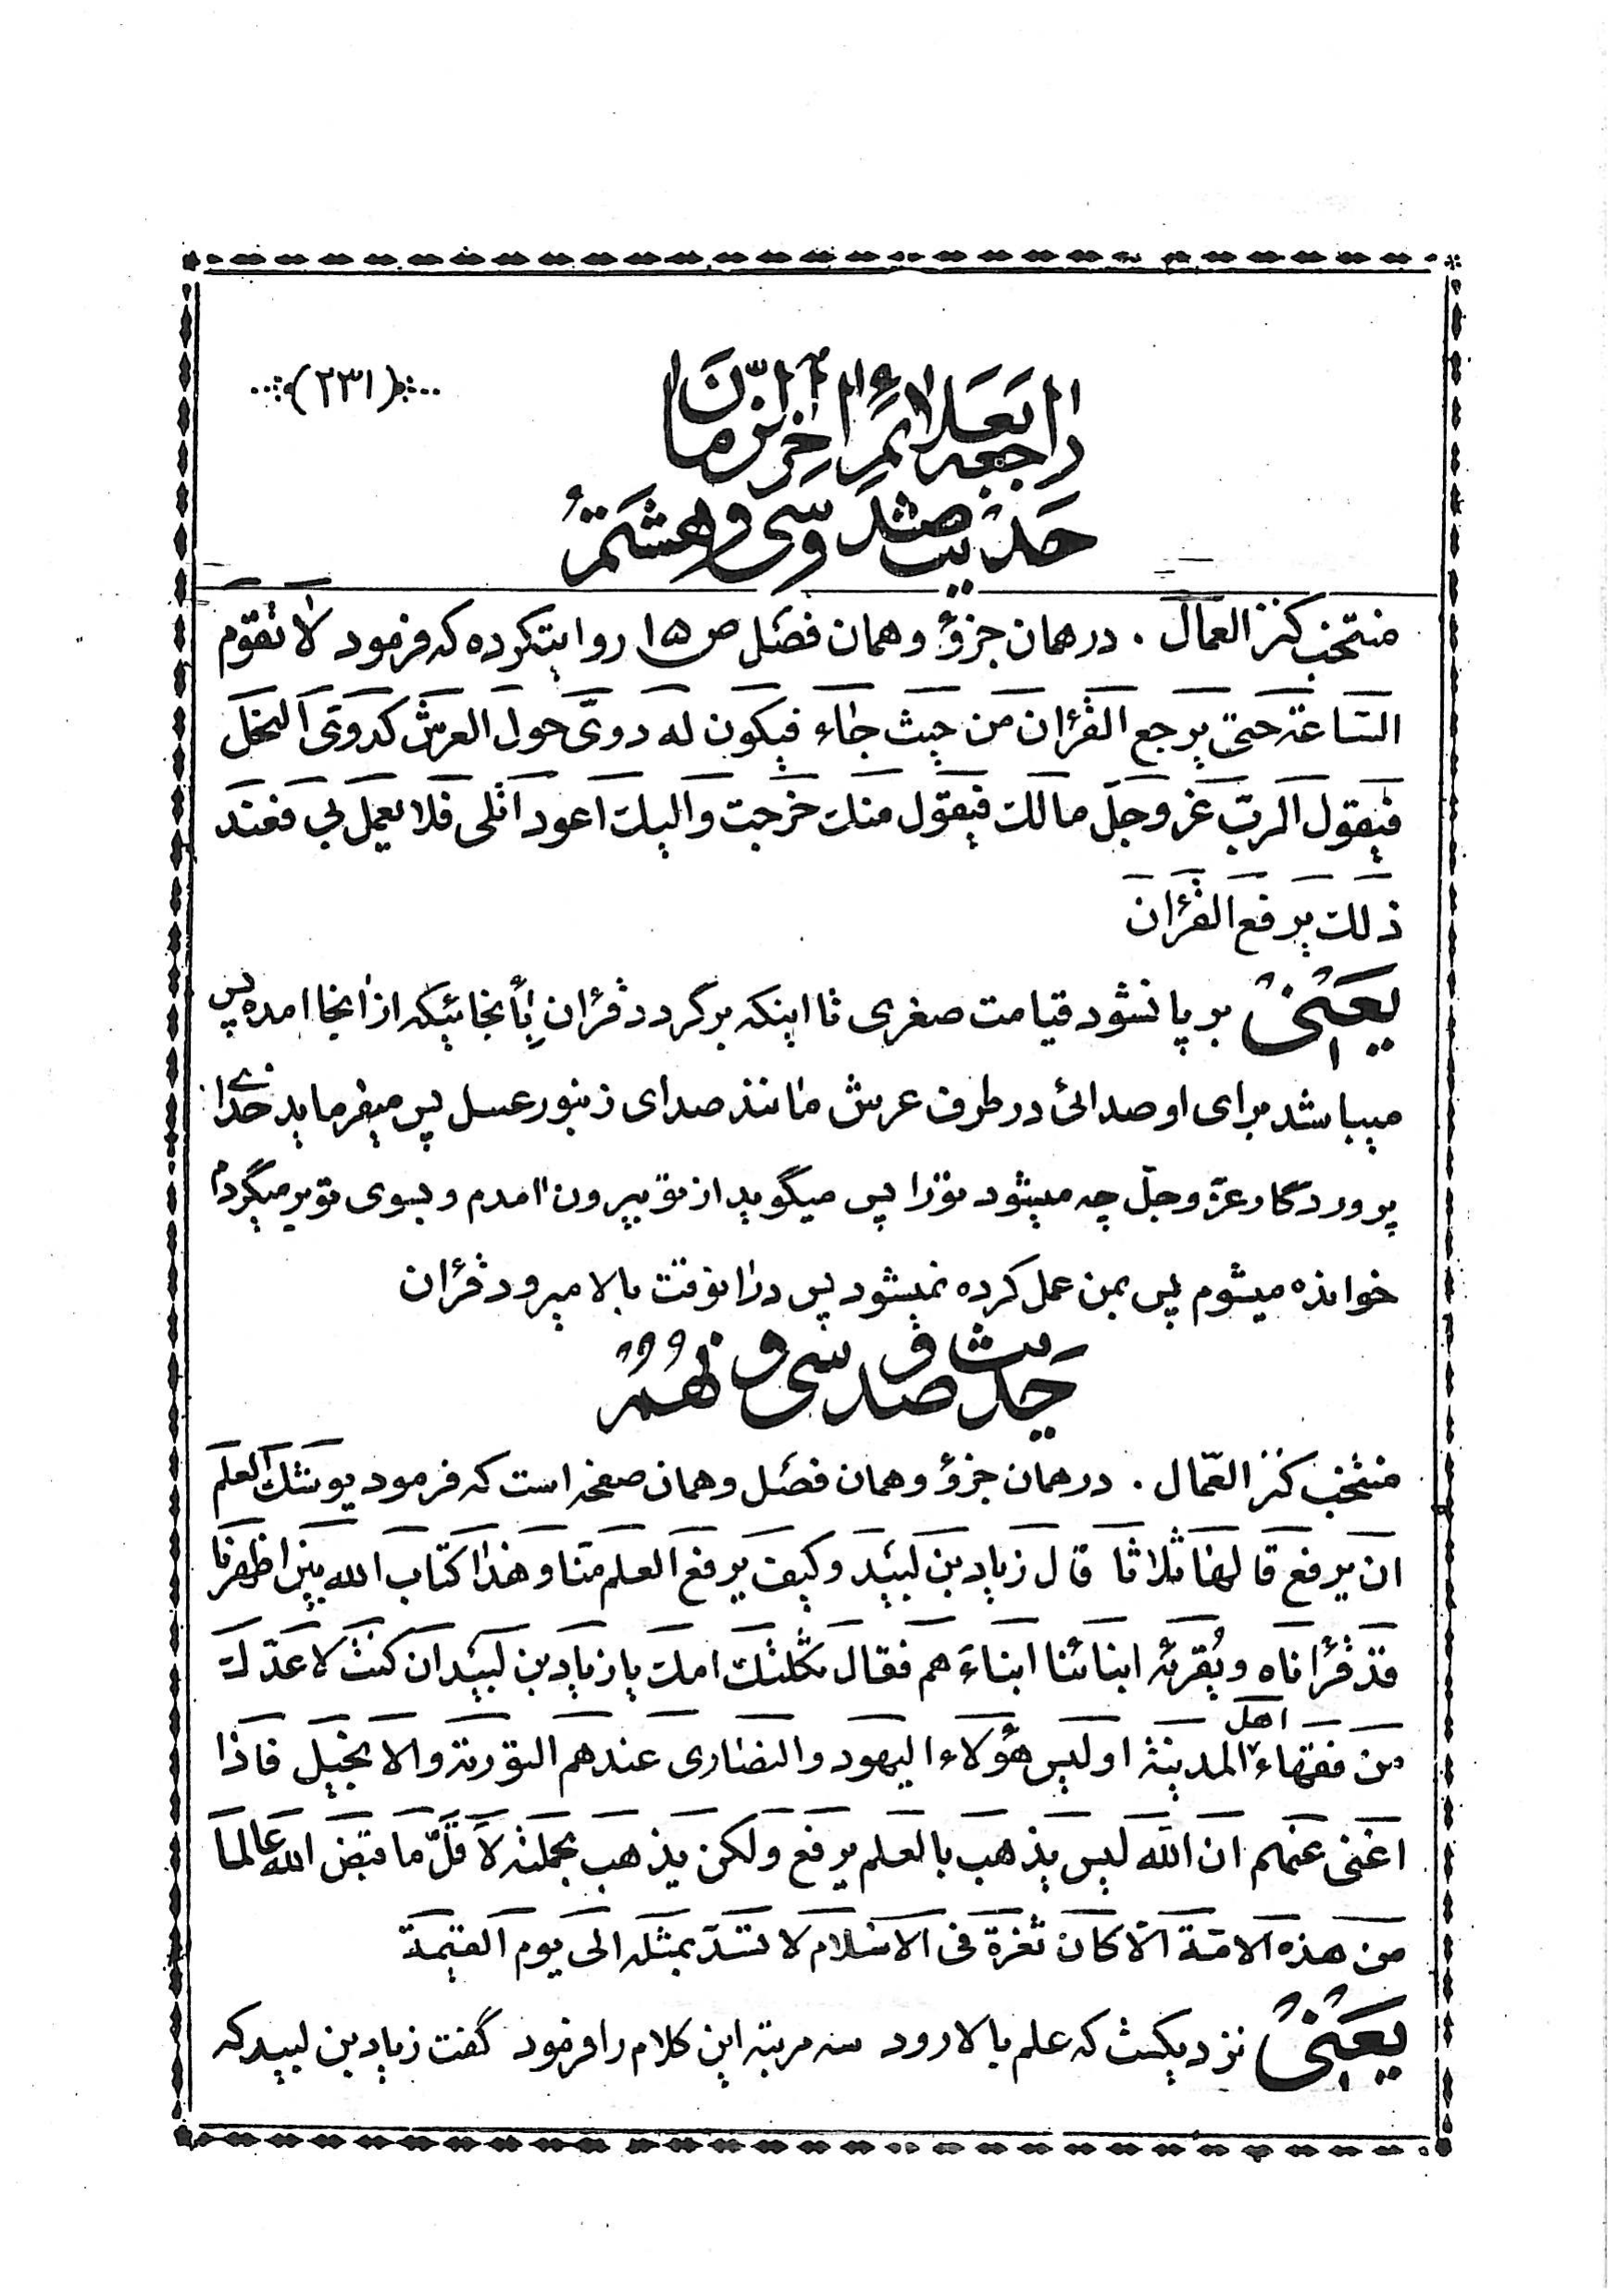 (۲۳۱)
راجعه بعلائم آخر الزمان
حدیث صد و سی و هشتم
منتخب کنز العمال . در همان جزؤ و همان فصل ص ۱۵ روایتکرده که فرمود لا تقوم
الساعة حتی یرجع القرءان من حیث جاء فیکون له دوی حول العرش کدوی النحل
فیقول الرب عز و جل مالک فیقول منک خرجت و الیک اعود اتلی فلا یعمل بی فعند
ذلک یرفع القرءان
یعنی بر پا نشود قیامت صغری تا اینکه برگردد قرءان بآنجائیکه از آنجا امده پس
میباشد برای او صدائی در طرف عرش مانند صدای زنبور عسل پس میفرماید خدای
پروردگار عز و جل چه میشود تو را پس میگوید از تو بیرون امدم و بسوی تو برمیگردم
خوانده میشوم پس بمن عمل کرده نمیشود پس در انوقت بالا میرود قرءان
حدیث صد و سی و نهم
منتخب کنز العمّال . در همان جزؤ و همان فصل و همان صفحه است که فرمود یوشک العلم
ان یرفع قالها ثلاثا قال زیاد بن لبید و کیف یرفع العلم منا و هذا کتاب الله بین اظهرنا
قد قرأناه و یُقرئه ابنائنا ابناءهم فقال ثکلتک امک یا زیاد بن لبید ان کنت لاعدّک
من فقهاء اهل المدینة اولیس هؤلاء الیهود و النصاری عندهم التوریة و الانجیل فاذا
اغنی عنهم ان الله لیس یذهب بالعلم یرفع ولکن یذهب بحملته لا قلّ ما قبض الله عالما
من هذه الامة الّا کان ثغرة فی الاسلام لا تسدّ بمثله الی یوم القیمة
یعنی نزدیکست که علم بالا رود سه مرتبه این کلام را فرمود گفت زیاد بن لبید که